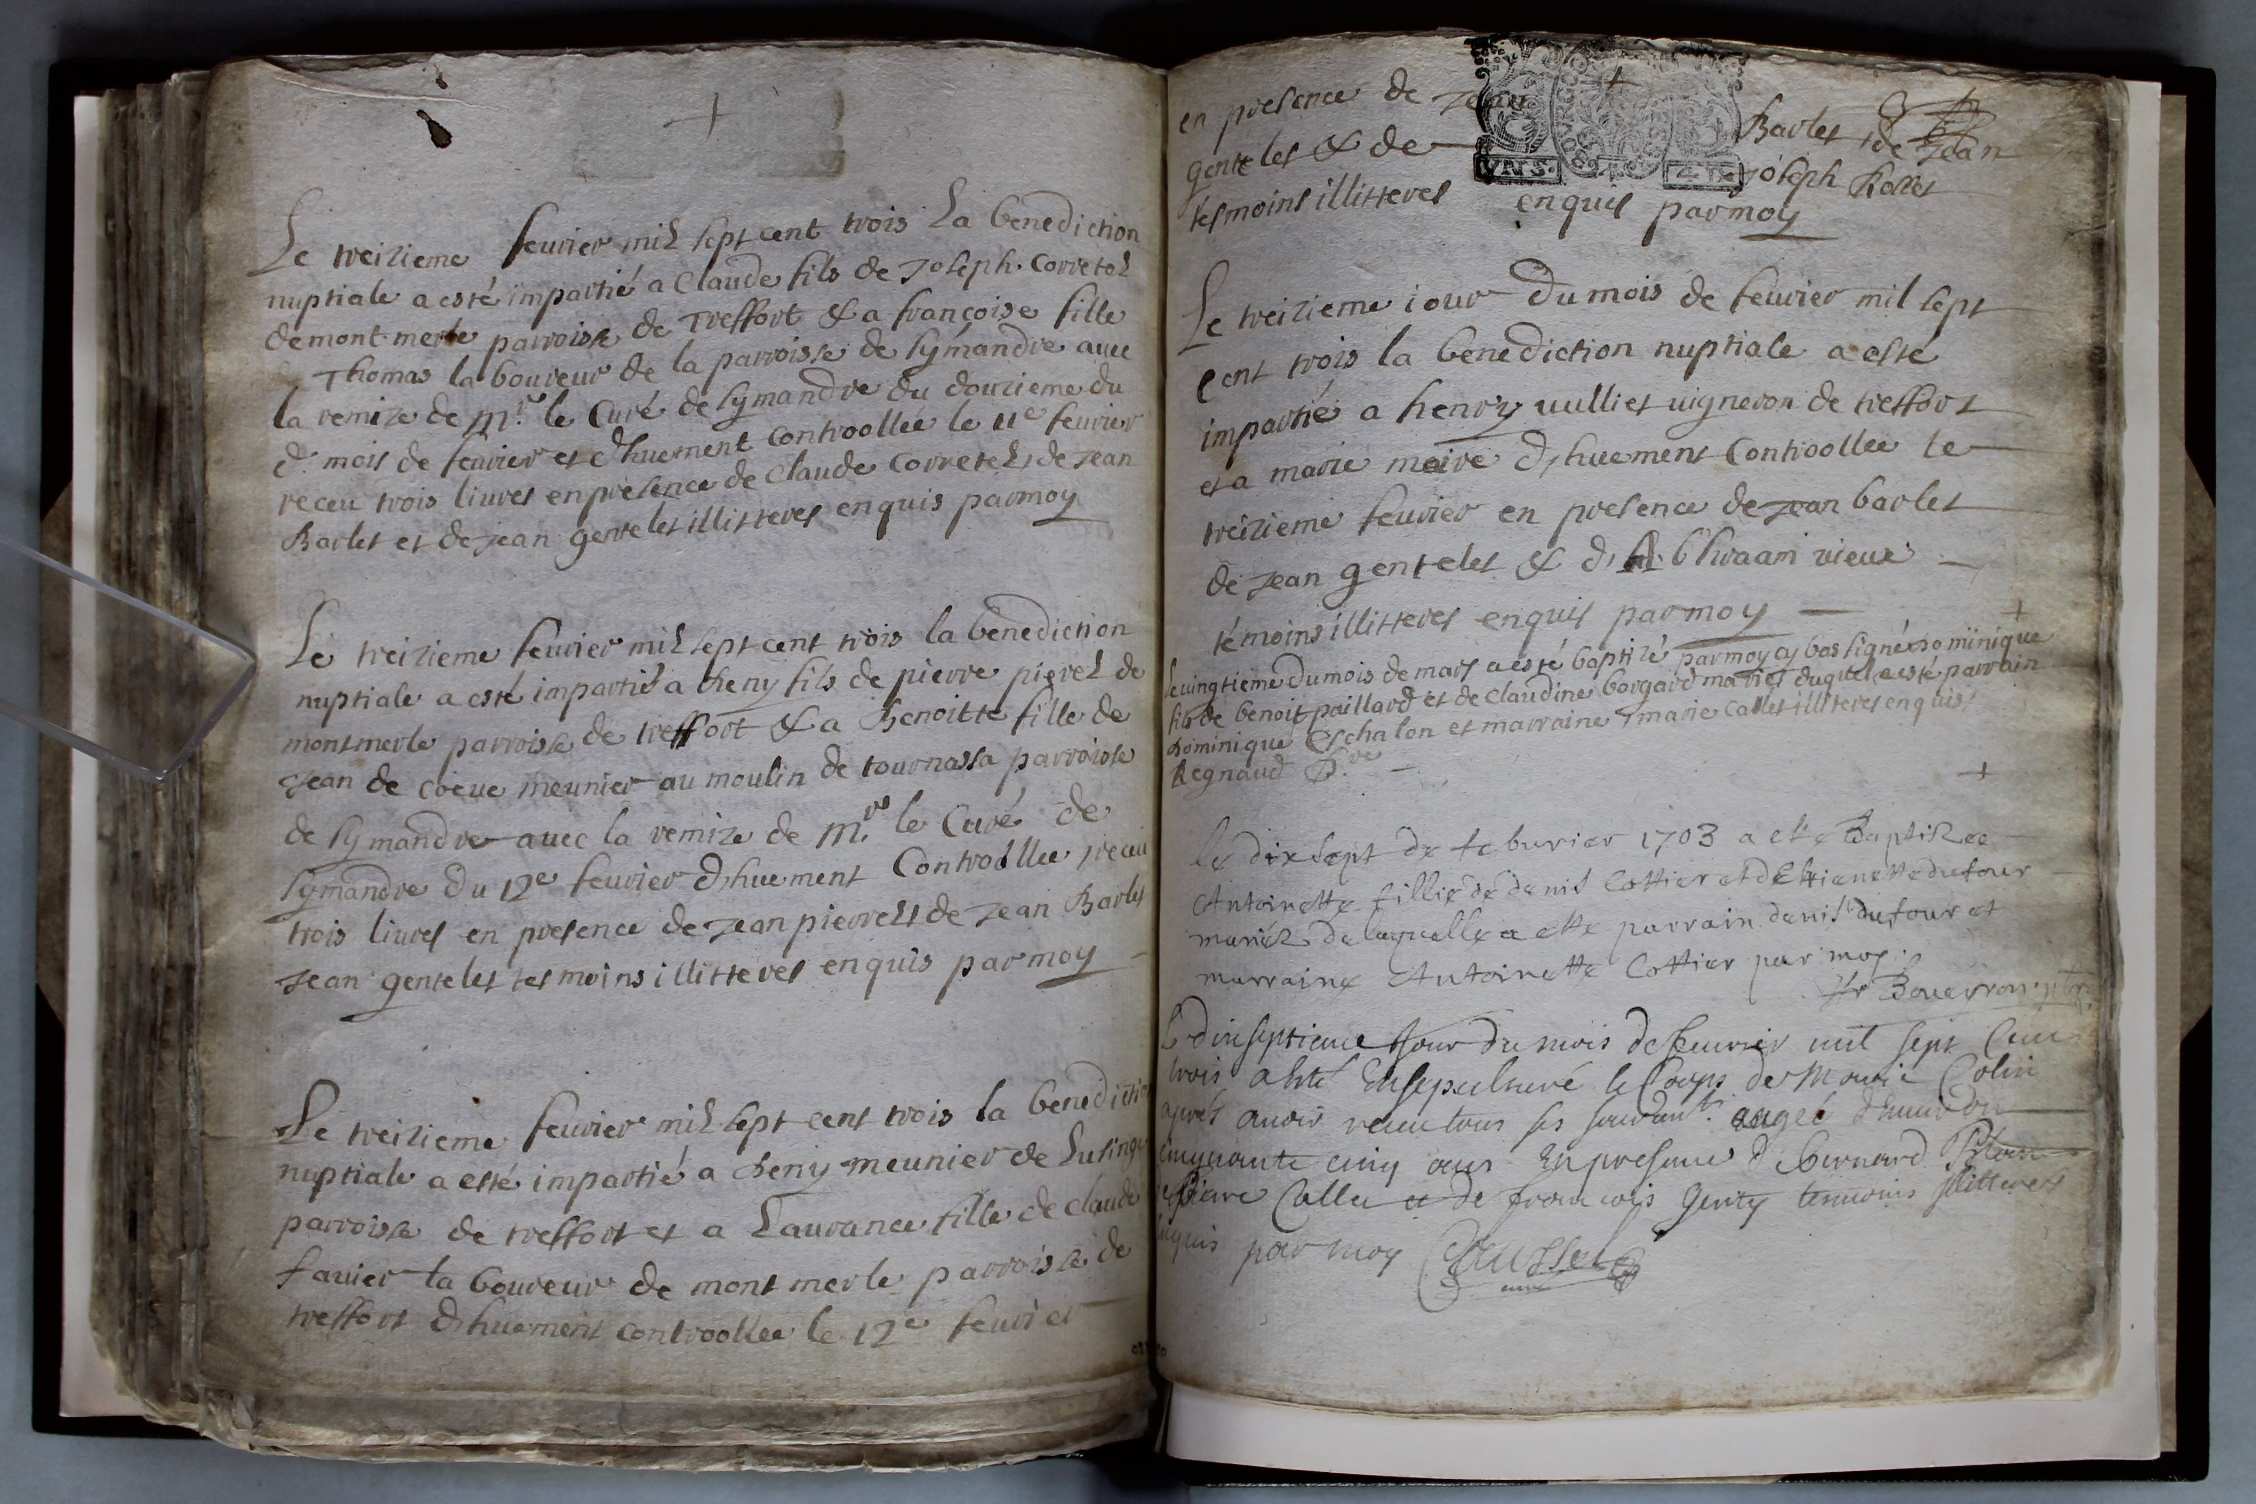 Le treizieme feurier mil sept cent trois La benediction
nuptiale a esté impartié a Claude fils de Joseph. Corretel
de mont merle parroisse de Treffort & a françoise fille
Thomas laboureur de la parroisse de symandre auec
la remize de Mr. le Curé de symandre du douzieme du
d. mois de feurier et dhuement controollée le 11e feurier
receu trois liures en presence de Claude Corretel, de Jean
Barlet et de Jean gentelet illitteres enquis par moy
Le treizieme feurier mil sept cent trois la benediction
nuptiale a esté impartié a heny fils de pierre pierrel de
montmerle parroisse de treffort & a Benoitte fille de
Jean de coeue meunier au moulin de tournassa parroisse
de symandre auec la remize de Mr. le Curé de
symandre du 12e feurier dhuement Controollee receu
trois liures en presence de Jean pierrel, de Jean Barlet
Jean gentelet tesmoins illitteres enquis par moy
Le treizieme feurier mil sept cent trois la benediction
nuptiale a esté impartié a heny meunier de Lusinge
parroisse de treffort et a Laurance fille de Claude
fauier laboureur de mont merle parroisse de
treffort dhuement controollee le 12e feurier
en presence de Jean Barlet de Jean
gentelet & de Joseph
tesmoins illitteres enquis par moy
Le treizieme iour du mois de feurier mil sept
cent trois la benediction nuptiale a esté
impartié a henry uulliet uigneron de treffort
et a marie moire dhuement Controollee le
treizieme feurier en presence de Jean barlet
de Jean gentelet & d'Abhraam vieux
témoins illitteres enquis par moy
le uingtieme du mois de mars a esté baptizé par moy cy bas signé dominique
fils de benoit paillard et de claudine borgard mariés duquel a esté parrain
dominique Eschalon et marraine marie Callet illiteres enquis
Regnaud Ptre
le dix sept de feburier 1703 a ete Baptizee
Antoinette fillie de denis Cottier et d'Etienette dufour
mariéz de laquelle a ette parrain denis dufour et
marraine Antoinette Cottier par moy
Le dixseptieme Jour du mois de feurier mil sept Cent
trois a esté Ensepulturé le Corps de Marie Colin
apres auoir receu tous ses sacremts. aagée d'enuiron
cinquante cinq ans En presence de bernard
pierre Callet et de francois Genty temoins illitteres
enquis par moy